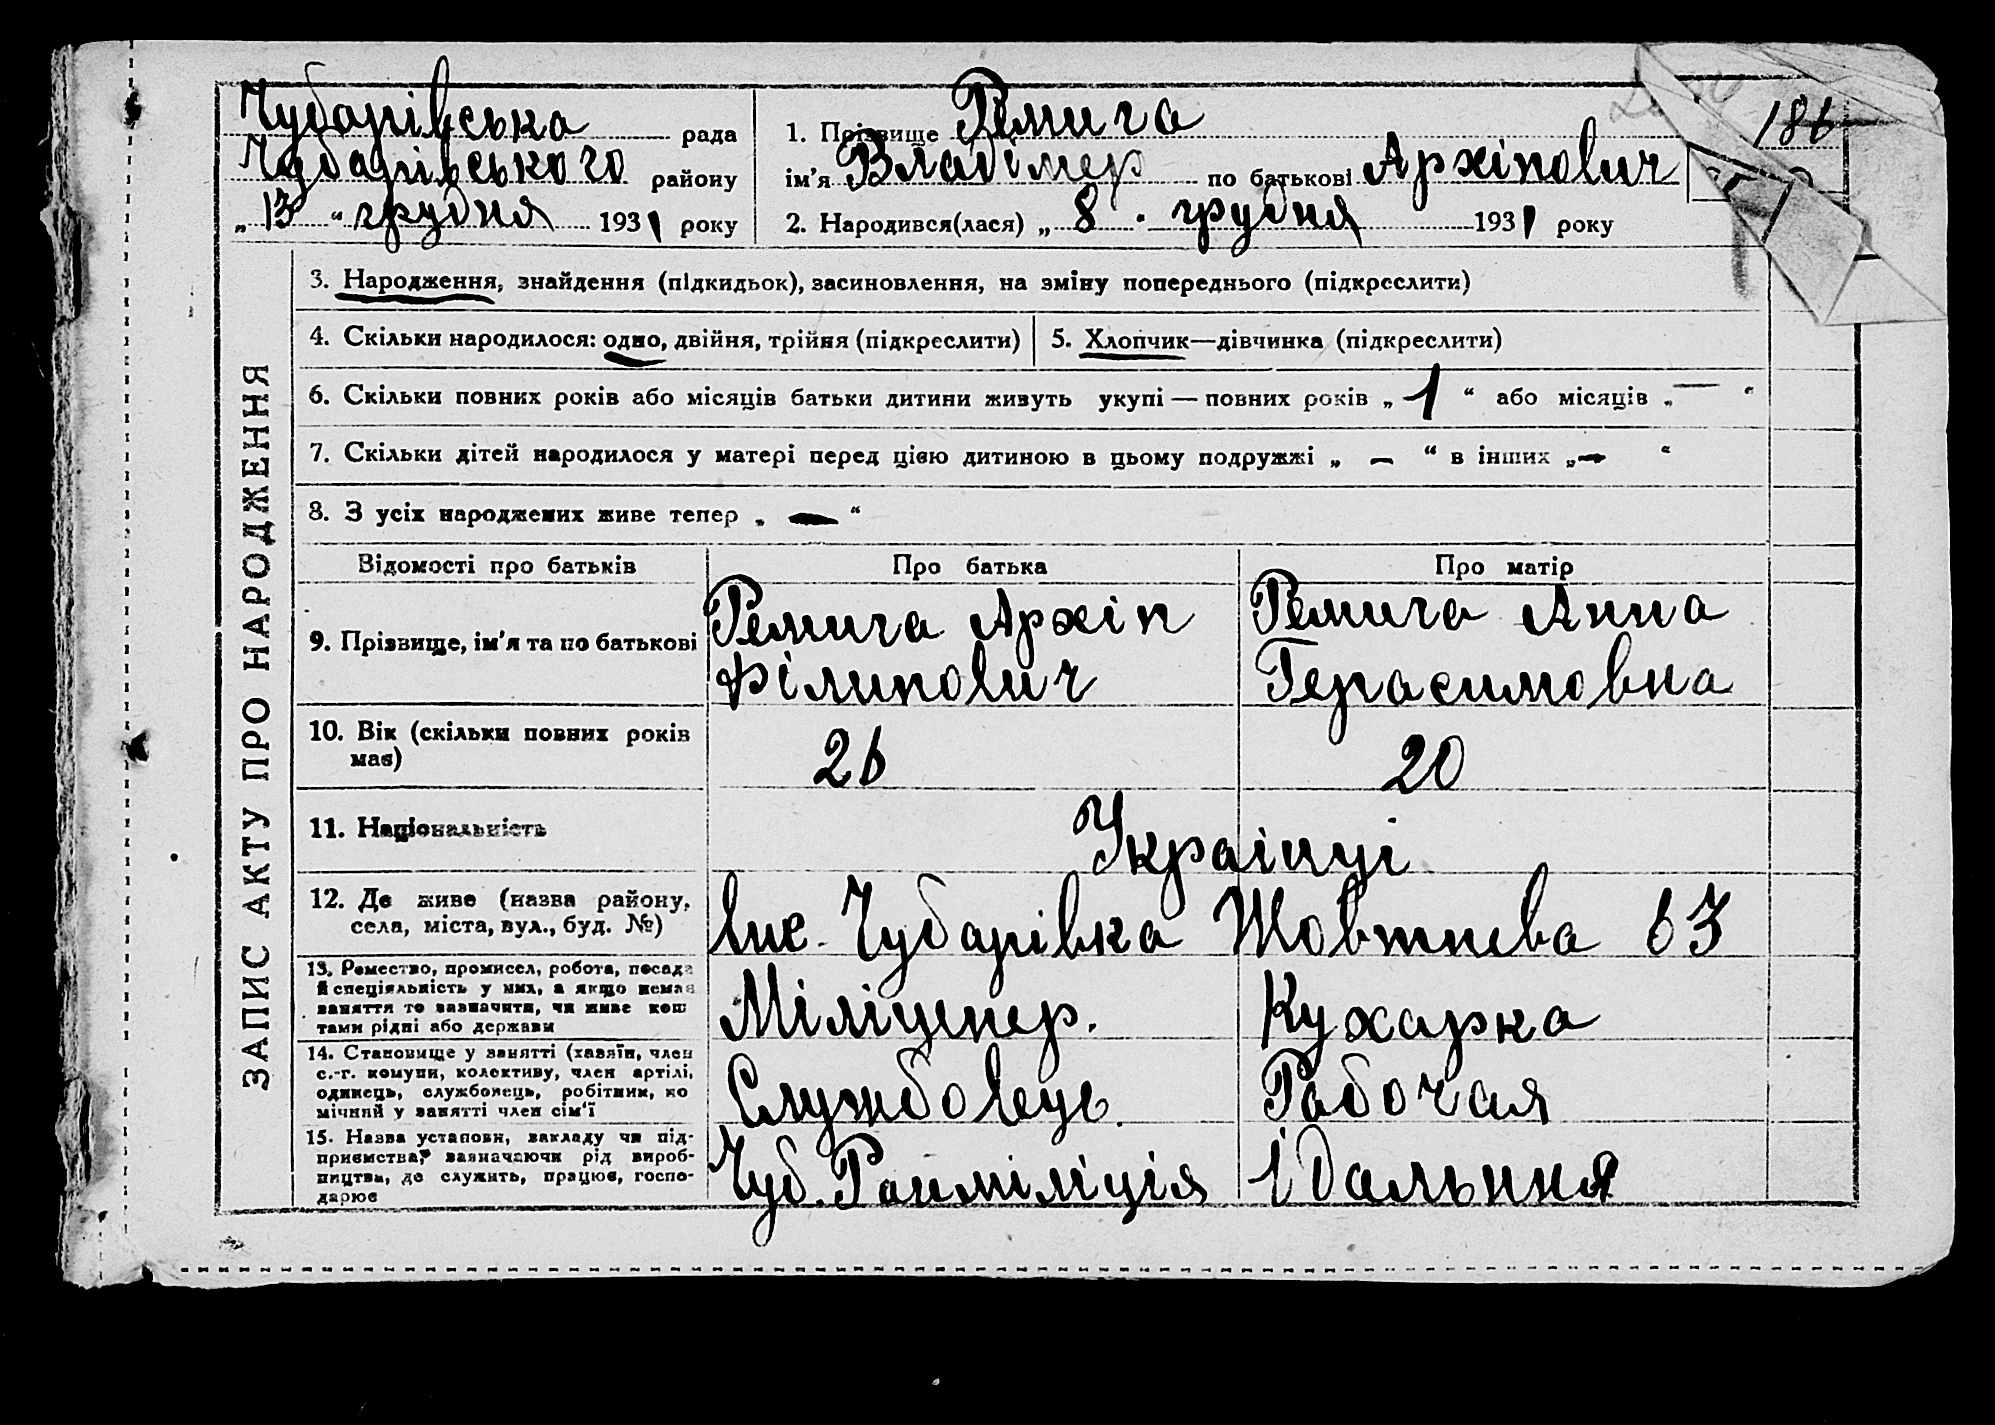 Чубарівська рада
Чубарівського району
„ 13 “ грудня 1931 року
1. Прізвище Ремига
ім'я Владімер по батькові Архіпович
2. Народився(лася) „ 8 . грудня 1931 року
186
ЗАПИС АКТУ ПРО НАРОДЖЕННЯ
3. Народження, знайдення (підкидьок), засиновлення, на зміну попереднього (підкреслити)
4. Скільки народилося: одно, двійня, трійня (підкреслити)
5. Хлопчик—дівчинка (підкреслити)
6. Скільки повних років або місяців батьки дитини живуть укупі — повних років „ 1 “ або місяців „ — “
7. Скільки дітей народилося у матері перед цією дитиною в цьому подружжі „ — “ в інших „ — “
8. З усіх народжених живе тепер „ — “
Відомості про батьків
Про батька
Про матір
9. Прізвище, ім'я та по батькові
Ремига Архіп
Філипович
Ремига Анна
Герасимовна
10. Вік (скільки повних років
має)
26
20
11. Національність
Українці
12. Де живе (назва району,
села, міста, вул., буд. №)
Чубарівка Жовтнева 63
13. Ремество, промисел, робота, посада
й спеціяльність у них, а якщо немає
заняття то зазначити, чи живе кош
тами рідні або держави
Міліціонер.
Кухарка
14. Становище у занятті (хазяїн, член
с.-г. комуни, колективу, член артілі,
одинець, службовець, робітник, по
мічний у занятті член сім'ї
Службовець
Рабочая
15. Назва установи, закладу чи під-
приємства, зазначаючи рід вироб-
ництва, де служить, працює, госпо-
дарює
Чуб. Райміліція
їдальння